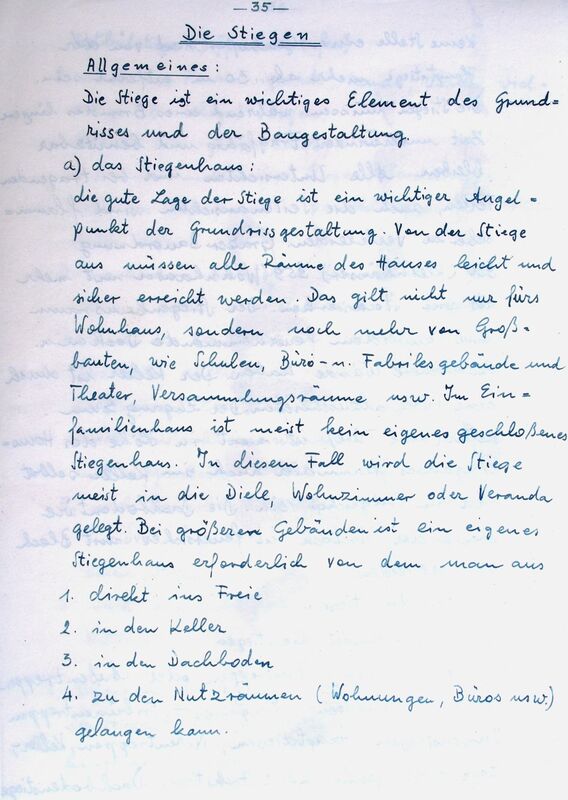 — 35 —
Die Stiegen
Allgemeines:
Die Stiege ist ein wichtiges Element des Grund=
risses und der Baugestaltung.
a) das Stiegenhaus:
die gute Lage der Stiege ist ein wichtiger Angel=
punkt der Grundrissgestaltung. Von der Stiege
aus müssen alle Räume des Hauses leicht und
sicher erreicht werden. Das gilt nicht nur fürs
Wohnhaus, sondern noch mehr von Groß=
bauten, wie Schulen, Büro- u. Fabriksgebäude und
Theater, Versammlungsräume usw. Im Ein=
familienhaus ist meist kein eigenes geschloßenes
Stiegenhaus. In diesem Fall wird die Stiege
meist in die Diele, Wohnzimmer oder Veranda
gelegt. Bei größeren Gebäuden ist ein eigenes
Stiegenhaus erforderlich von dem man aus
1. direkt ins Freie
2. in den Keller
3. in den Dachboden
4. zu den Nutzräumen (Wohnungen, Büros usw.)
gelangen kann.